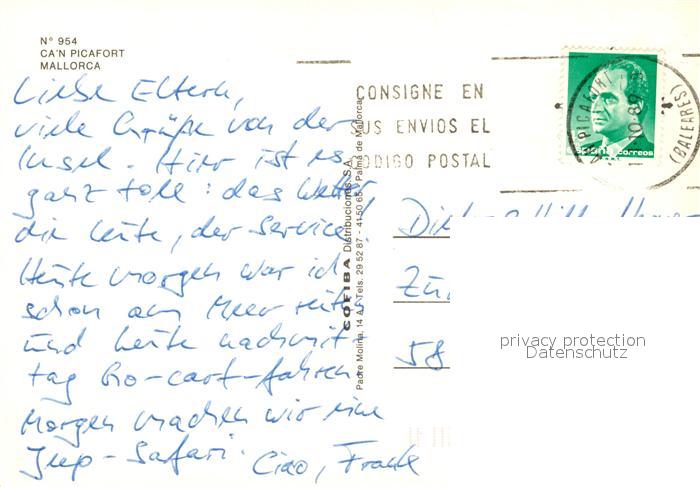 N° 954
CA'N PICAFORT
MALLORCA
Liebe Eltern,
viele Grüße von der
Insel. Hier ist es
ganz toll: das Wetter,
die Leute, der Service!
Heute morgen war ich
schon am Meer reiten
und heute nachmit-
tag Go-cart-fahren.
Morgen machen wir eine
Jeep-Safari. Ciao, Frank
COFIBA Distribuciones, S.A.
Padre Molina, 14 A / Tels. 29 52 87 - 41 50 65 / Palma de Mallorca
CONSIGNE EN
SUS ENVIOS EL
CODIGO POSTAL
PICAFORT
(BALEARES)
España correos
58
privacy protection
Datenschutz